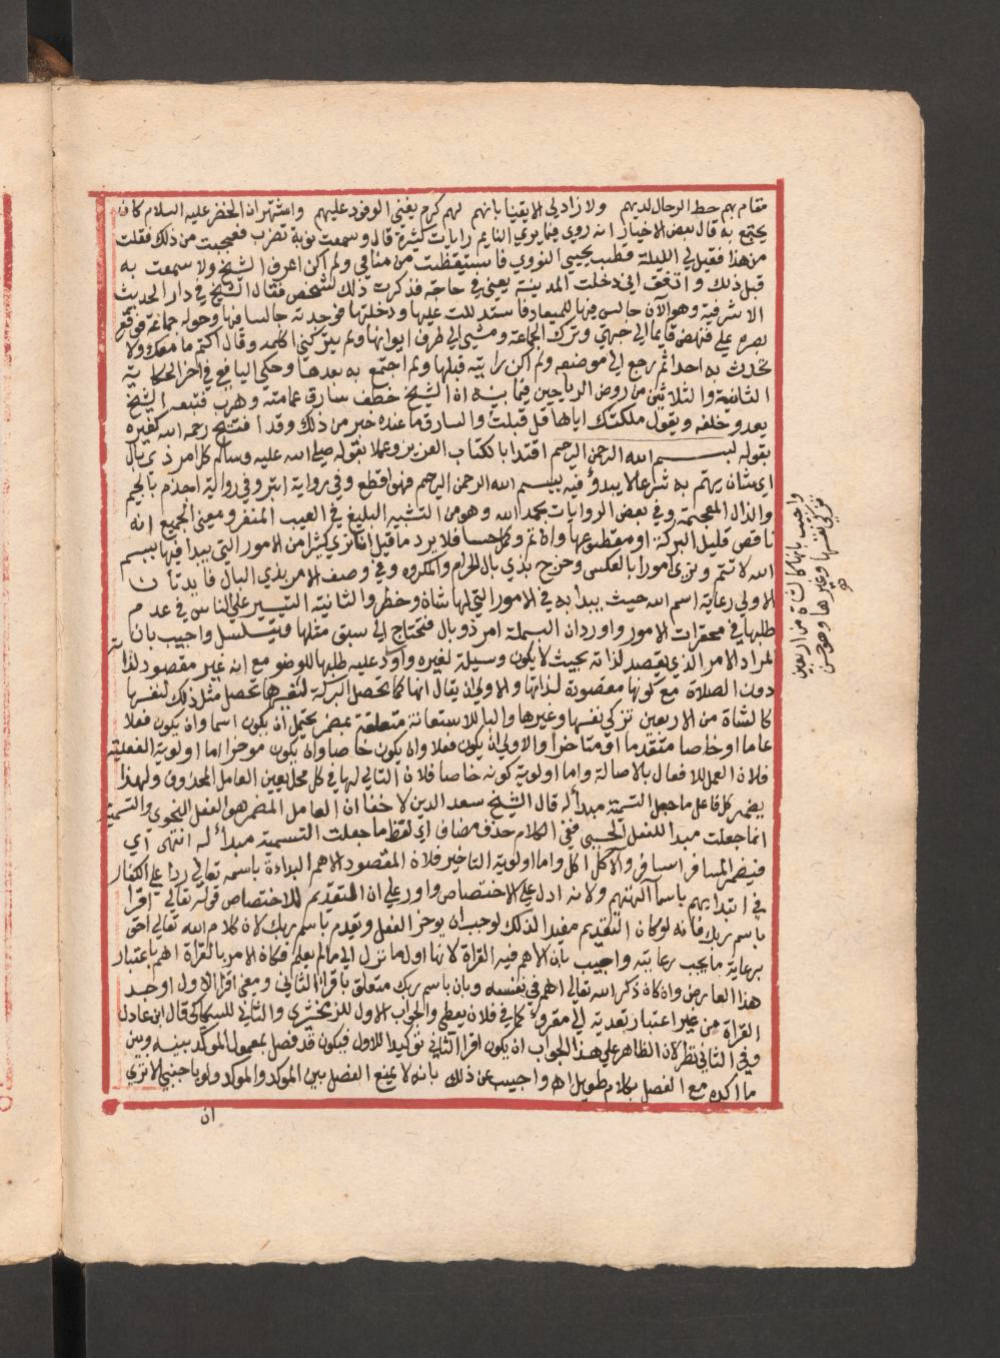 مقام بهم حط الرحال لديهم ولا زاد لي الا يقيني بانهم لهم كرم يغني الوفود عليهم واشتهر ان الخضر عليه السلام كان
يجتمع به قال بعض الاخيار انه روي فيما يري النايم رايات كثيرة قال وسمعت نوبة تضرب فعجبت من ذلك فقلت
من هذا فقيل لي الليلة قطب يحيي النووي فاستيقظت من منامي ولم اكن اعرف الشيخ ولا سمعت به
قبل ذلك واتفق اني دخلت المدينة يعني في حاجة فذكرت ذلك لشخص فقال الشيخ في دار الحديث
الاشرفية وهو الآن جالس فيها للميعاد فاستدللت عليها ودخلتها فوجدته جالسا فيها وحوله جماعة فوقع
بصره علي فنهض قايما الي جهتي وترك الجماعة ومشي الي طرف ايوانها ولم يتركني اكلمه وقال اكتم ما معك ولا
تحدث به احدا ثم رجع الي موضعه ولم اكن رايته قبلها ولم اجتمع به بعدها وحكي اليافعي في اخر الحكاية
الثانية والثلاثين من روض الرياحين ان الشيخ خطف سارق عمامته وهرب فتبعه الشيخ
يعدو خلفه ويقول ملكتك اياها قل قبلت والسارق ما عنده خبر من ذلك وقد افتتح رحمه الله كغيره
بقوله بسم الله الرحمن الرحيم اقتدا بالكتاب العزيز وعملا بقوله صلي الله عليه وسلم كل امر ذي بال
اي شان يهتم به شرعا لا يبدؤ فيه ببسم الله الرحمن الرحيم فهو اقطع وفي رواية ابتر وفي رواية اجذم بالجيم
والذال المعجمة وفي بعض الروايات بحمد الله وهو من التشبيه البليغ في العيب المنفر ومعني الجميع انه
ناقص قليل البركة او مقطوعها وان تم وكمل حسا فلا يرد ما قيل انا نري كثيرا من الامور التي يبدا فيها ببسم
الله لا تتم ونري امورا بالعكس وخرج بذي بال الحرام والمكروه وفي وصف الامر بذي البال فايدتان
الاولي رعاية اسم الله حيث يبدا به في الامور التي لها شان وخطر والثانية التيسير علي الناس في عدم
طلبها في محقرات الامور واورد ان البسملة امر ذو بال فتحتاج الي سبق مثلها فيتسلسل واجيب بان
المراد الامر الذي يقصد لذاته بحيث لا يكون وسيلة لغيره واورد عليه طلبها للوضو مع انه غير مقصود لذاته
دون الصلاة مع كونها مقصودة لذاتها والاولي ان يقال انها كما تحصل البركة لغيرها تحصل مثل ذلك لنفسها
كالشاة من الاربعين تزكي نفسها وغيرها والبا للاستعانة متعلقة بمضمر يحتمل ان يكون اسما وان يكون فعلا
عاما او خاصا متقدما او متاخرا والاولي ان يكون فعلا وان يكون خاصا وان يكون موخرا اما اولوية الفعلية
فلان العمل للافعال بالاصالة واما اولوية كونه خاصا فلان التالي لها في كل محل يعين العامل المحذوف ولهذا
يضمر كل فاعل ما جعل التسمية مبدأ له قال الشيخ سعد الدين لا خفا ان العامل المضمر هو الفعل النحوي والتسمية
انما جعلت مبدا للفعل الحسي ففي الكلام حذف مضاف اي لفظ ما جعلت التسمية مبدأ له انتهي اي
فيضمر المسافر اسافر والآكل اكل واما اولوية التاخير فلان المقصود الاهم البداءة باسمه تعالي ردا علي الكفار
في ابتدايهم باسما آلهتهم ولانه ادل علي الاختصاص واورد علي ان التقديم للاختصاص قوله تعالي اقرا
باسم ربك فانه لو كان التقديم مفيدا لذلك لوجب ان يوخر الفعل ويقدم باسم ربك لان كلام الله تعالي احق
برعاية ما يجب رعايته واجيب بان الاهم فيه القراة لانها اول ما نزل الي ما لم يعلم فكان الامر بالقراة اهم باعتبار
هذا العارض وان كان ذكر الله تعالي اهم في نفسه وبان باسم ربك متعلق باقرا الثاني ومعني اقرا الاول اوجد
القراة من غير اعتبار تعديته الي مقروء كما في فلان يعطي والجواب الاول للزمخشري والثاني للسكاكي قال ابن عادل
وفي الثاني نظر لان الظاهر علي هذا الجواب ان يكون اقرا الثاني توكيدا للاول فيكون قد فصل بمعمول الموكد بينه وبين
ما اكده مع الفصل بكلام طويل اه واجيب عن ذلك بانه لا يمنع الفصل بين الموكد والموكد ولو باجنبي الا تري
ان
واجيب بانها كالشاة من اربعين
تزكي نفسها وغيرها وهو حسن